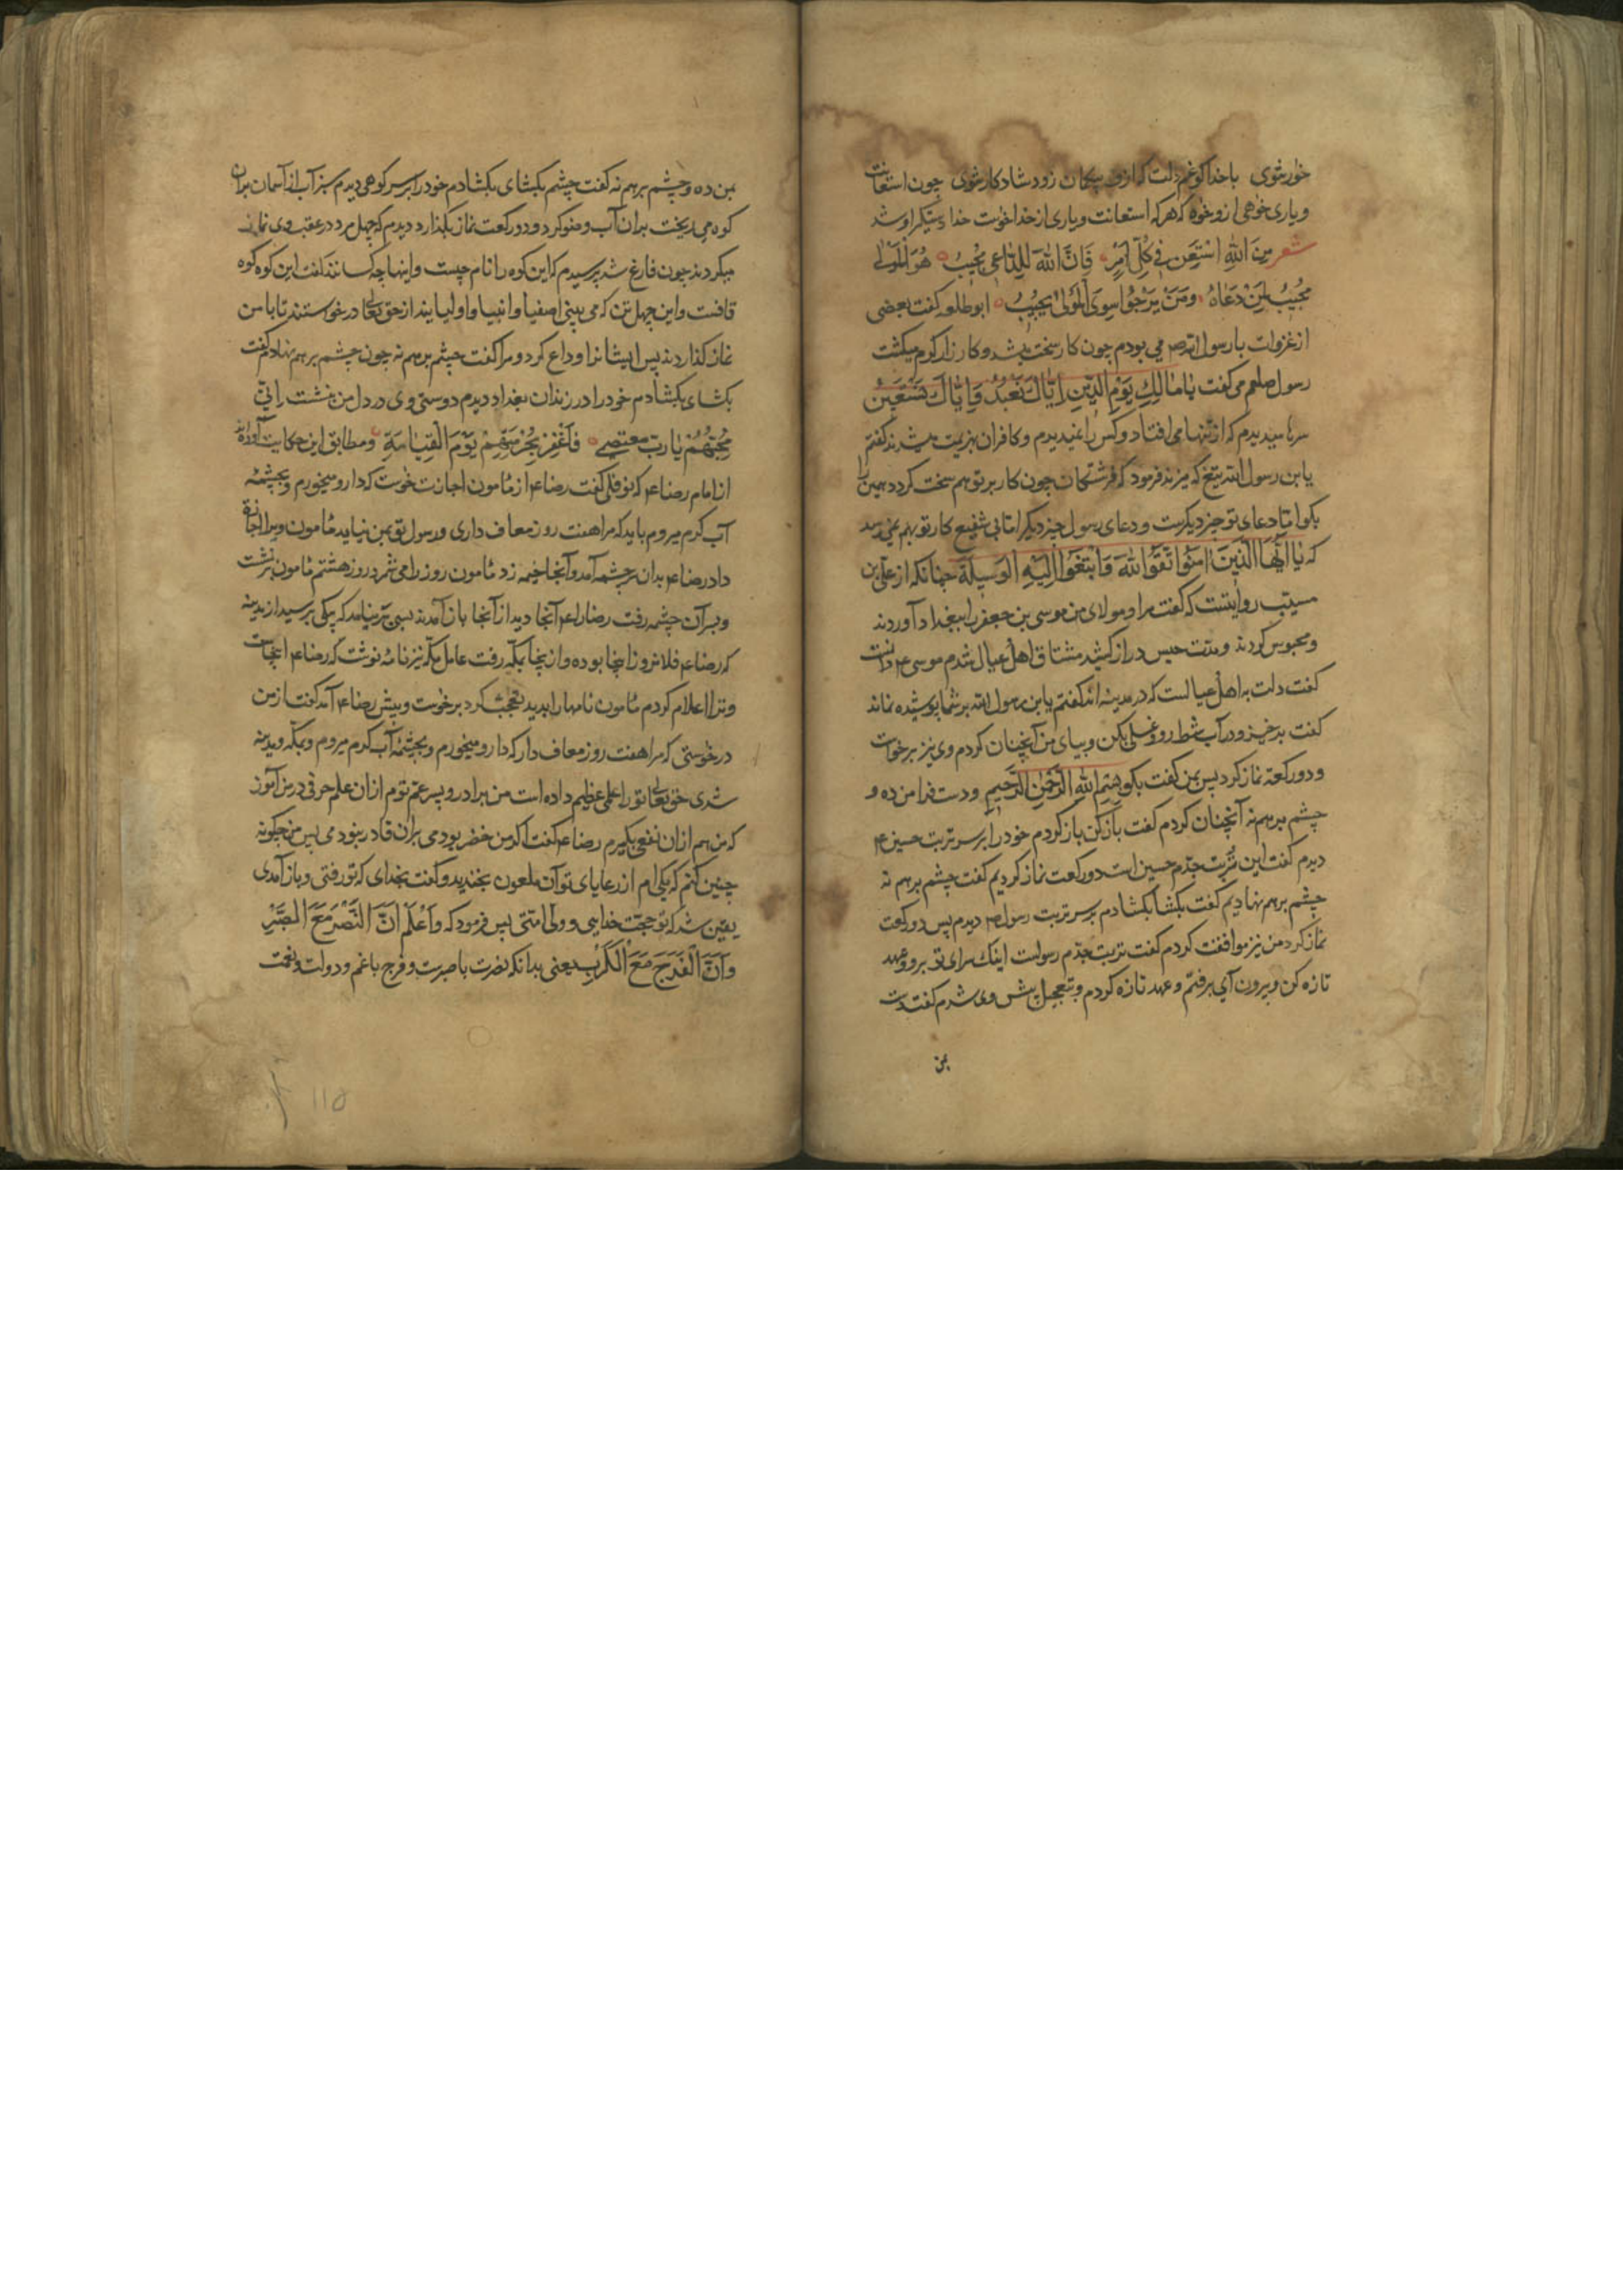 خوارشوی با خدا گو غم دلت که ازو بیگمان زود شادکار شوی چون استعانت
و یاری خوهی ازو خواه که هرکه استعانت و یاری از خدا خوست خدا دستگیر او شد
شعر مِنَ اللّٰهِ اسْتَعِن فِی كُلِّ اَمْرٍ فَاِنَّ اللّٰهَ لِلدَّاعِی مُجِیبُ هُوَ الْمَوْلٰی
مُجِیبُ لِمَنْ دَعَاهُ وَمَنْ یَرْجُوا سِوَی الْمَوْلٰی یَخِیبُ ابو طلحه گفت بعضی
از غزوات با رسول الله ص می بودم چون کار سخت میشد و کارزار گرم میگشت
رسول صلعم می گفت یا مَالِكِ یَوْمِ الدِّینِ اِیَّاكَ نَعْبُدُ وَاِیَّاكَ نَسْتَعِینُ
سرها میدیدم که از تنها می افتاد و کس را نمیدیدم و کافران بهزیمت میشدند گفتم
یا بن رسول الله تیغ که میزند فرمود که فرشتگان چون کار بر تو هم سخت گردد همین را
بگو اما دعای تو چیز دیگرست و دعای رسول چیز دیگر اما بی شفیع کار تو بهم نمی رسد
که یٰا اَیُّهَا الَّذِینَ اٰمَنُوا اتَّقُوا اللّٰهَ وَابْتَغُوا اِلَیْهِ الْوَسِیلَةَ چنانکه از علی بن
مسیب روایتست که گفت مرا و مولای من موسی بن جعفر را ببغداد آوردند
و محبوس کردند و مدت حبس دراز کشید مشتاق اهل عیال شدم موسی ع دانست
گفت دلت به اهل عیالست که در مدینه اند گفتم یا بن رسول الله بر شما پوشیده نماند
گفت برخیز و در آب شط رو و غسلی بکن و بیای من آنچنان کردم وی نیز برخواست
و دو رکعة نماز کرد پس بمن گفت بگو بِسْمِ اللّٰهِ الرَّحْمٰنِ الرَّحِیمِ و دست فرا من ده و
چشم برهم نه آنچنان کردم گفت باز کن باز کردم خود را بر سر تربت حسین ع
دیدم گفت این تربت جدم حسین است دو رکعت نماز کردیم گفت چشم برهم نه
چشم برهم نهادیم گفت بگشا بگشادم بر سر تربت رسول ص دیدم پس دو رکعت
نماز کرد من نیز موافقت کردم گفت تربت جدم رسولست اینک سرای تو برو و عهد
تازه کن و بیرون آی برفتم و عهد تازه کردم و بتعجیل پیش وی شدم گفت دست
بمن
بمن ده و چشم برهم نه گفت چشم بگشای بگشادم خود را بر سر کوهی دیدم سبز آب از آسمان بران
کوه می ریخت بدان آب وضو کرد و دو رکعت نماز بگذارد دیدم که چهل مرد در عقب وی نماز
میکردند چون فارغ شد پرسیدم که این کوه را نام چیست و اینها چه کسانند گفت این کوه کوه
قافست و این چهل تن که می بینی اصفیا و انبیا و اولیایند از حق تعالی درخواستند تا با من
نماز گذاردند پس ایشانرا وداع کرد و مرا گفت چشم برهم نه چون چشم برهم نهادم گفت
بگشای بگشادم خود را در زندان بغداد دیدم دوستی وی در دل من بنشست
یٰا رب فَاَغْفِرْ یَوْمَ الْقِیٰامَةِ و مطابق این حکایت آورده اند
از امام رضا ع که نوفلی گفت رضا ع از مأمون اجازت خوست که دارو میخورم و بچشمه
آب گرم میروم باید که مرا هفت روز معاف داری و رسول تو بمن نیاید مأمون ویرا اجازة
داد رضا ع بدان سرچشمه آمد و آنجا خیمه زد مأمون روز را می شمرد روز هشتم مأمون برنشست
و بسر آن چشمه رفت رضا را ع آنجا دید از آنجا باز آمدند بسی برنیامد که پیکی برسید از مدینه
که رضا ع فلان روز اینجا بوده و از اینجا بمکه رفت عامل مکه نیز نامه نوشت که رضا ع اینجاست
و ترا اعلام کردم مأمون نامها را بدید تعجب کرد برخوست و پیش رضا ع آمد گفت از من
درخوستی که مرا هفت روز معاف دار که دارو میخورم و بچشمه آب گرم میروم و بمکه و مدینه
شدی حق تعالی تو را علمی عظیم داده است من برادر و پسر عم توم ازان علم حرفی در من آموز
که من هم ازان نفعی بگیرم رضا ع گفت اگر من خضر بودمی بران قادر نبودمی پس من چگونه
چنین کنم که یکی ام از رعایای تو آن ملعون بخندید و گفت بخدای که تو رفتی و باز آمدی
یقین شد که تو حجت خدایی و ولی امتی پس فرمود که وَاَعْلَمْ اَنَّ النَّصْرَ مَعَ الصَّبْرِ
وَاَنَّ الْفَرَجَ مَعَ الْكَرْبِ یعنی بدانکه نصرت با صبرست و فرج با غم و دولت و نعمت